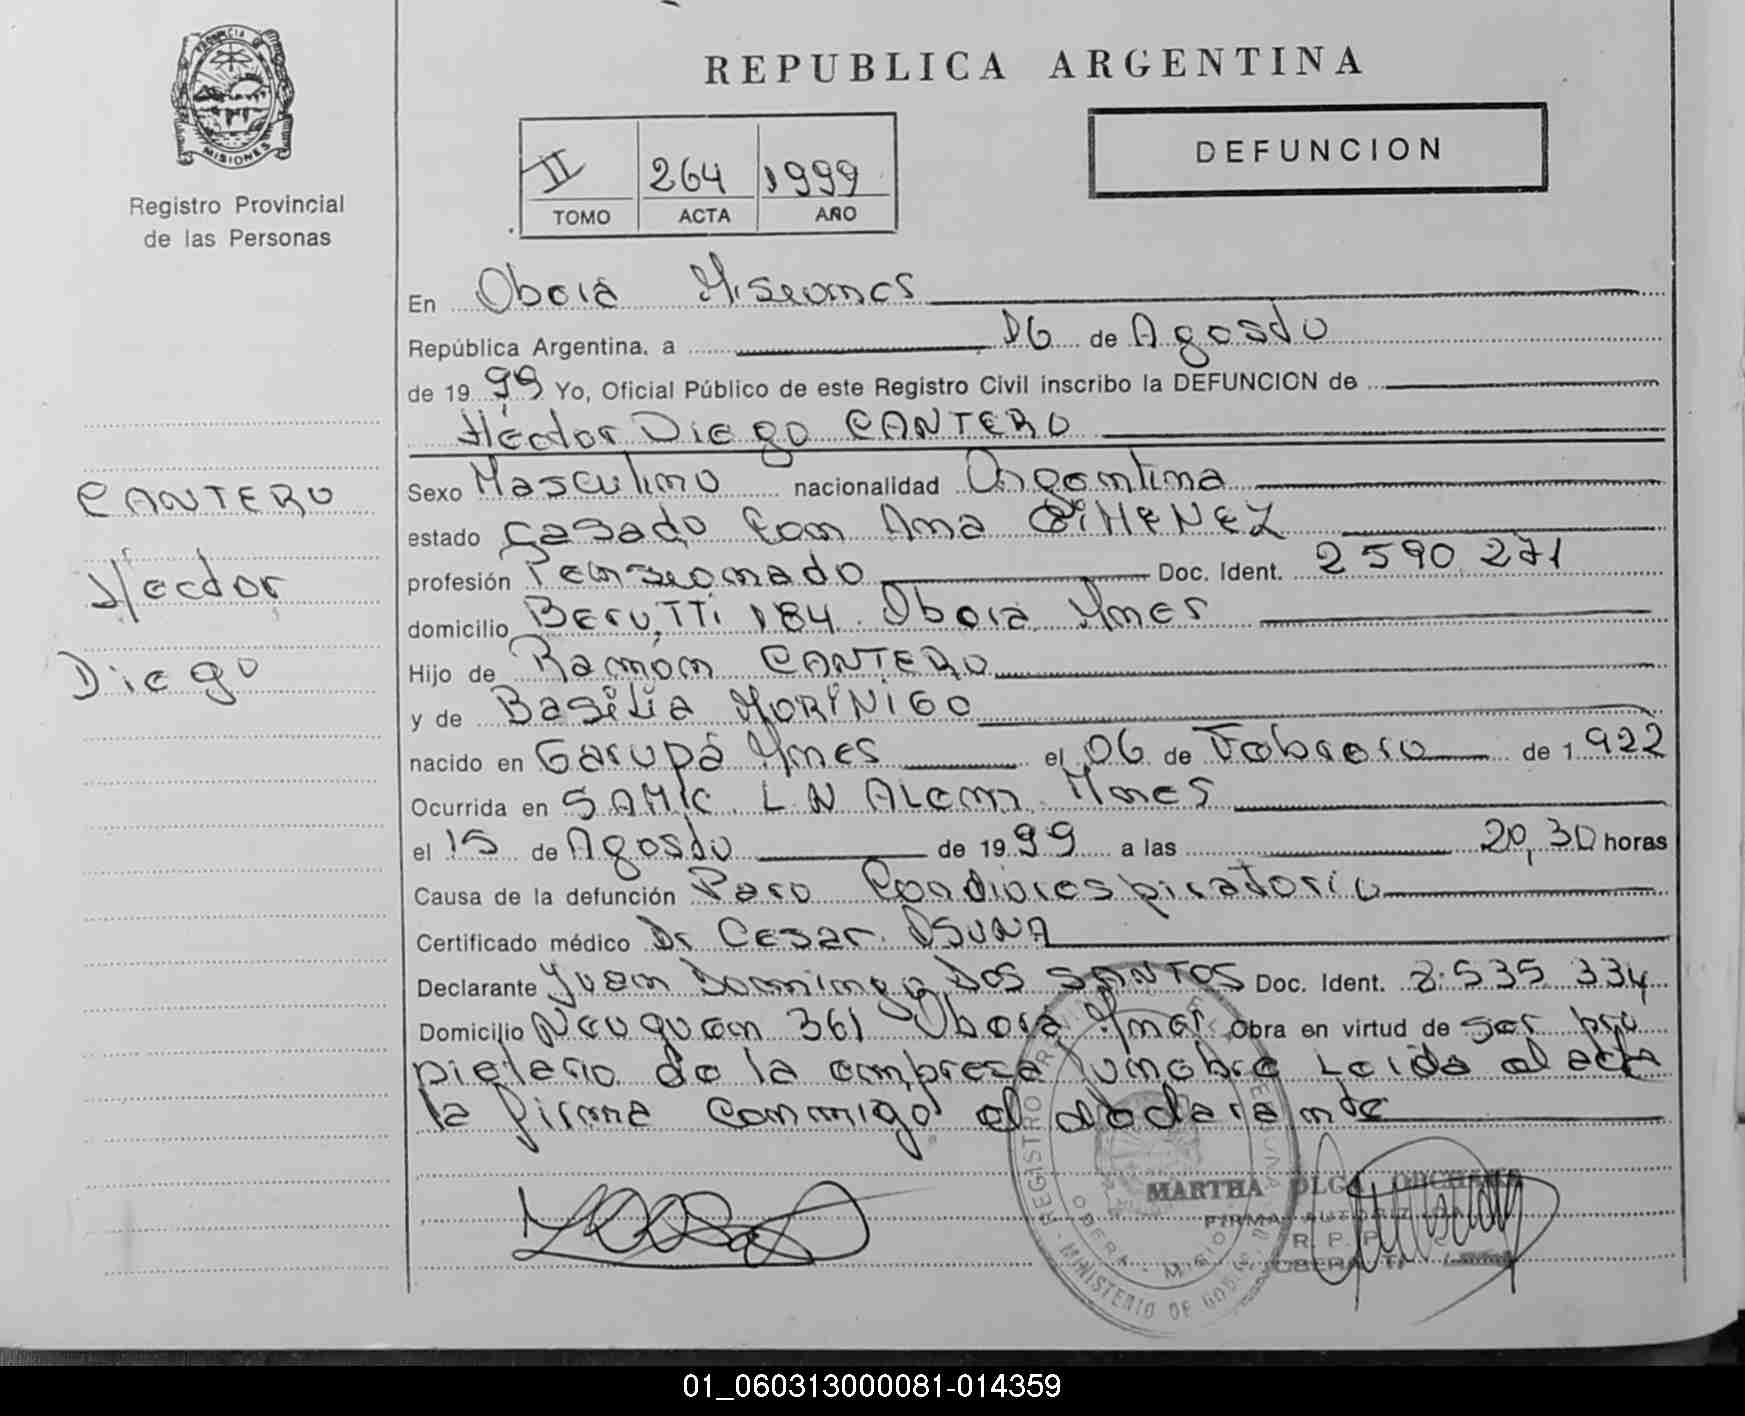 PROVINCIA DE
MISIONES
Registro Provincial
de las Personas
REPUBLICA ARGENTINA
II 264 1999
TOMO ACTA AÑO
DEFUNCION
En Oberá Misiones
República Argentina, a 16 de Agosto
de 1999 Yo, Oficial Público de este Registro Civil inscribo la DEFUNCION de
Héctor Diego CANTERO
CANTERO
Hector
Diego
Sexo Masculino nacionalidad Argentina
estado Casado con Ana GIMENEZ
profesión Pensionado Doc. Ident. 2590271
domicilio Berutti 184 Oberá Mnes
Hijo de Ramón CANTERO
y de Basilia MORINIGO
nacido en Garupá Mnes el 06 de Febrero de 1.922
Ocurrida en SAMIC L N Alem Mnes
el 15 de Agosto de 1999 a las 20,30 horas
Causa de la defunción Paro Cardiorespiratorio
Certificado médico Dr Cesar OSUNA
Declarante Juan Domingo DOS SANTOS Doc. Ident. 8.535.334
Domicilio Neuquen 361 Oberá Mnes Obra en virtud de ser pro
pietario de la empresa funebre Leida el acta
la firma conmigo el declarante
REGISTRO
MINISTERIO DE GOB
OBERA - MISIONES
MARTHA OLGA
FIRMA AUTORIZADA
R. P. P.
OBERA
01_060313000081-014359